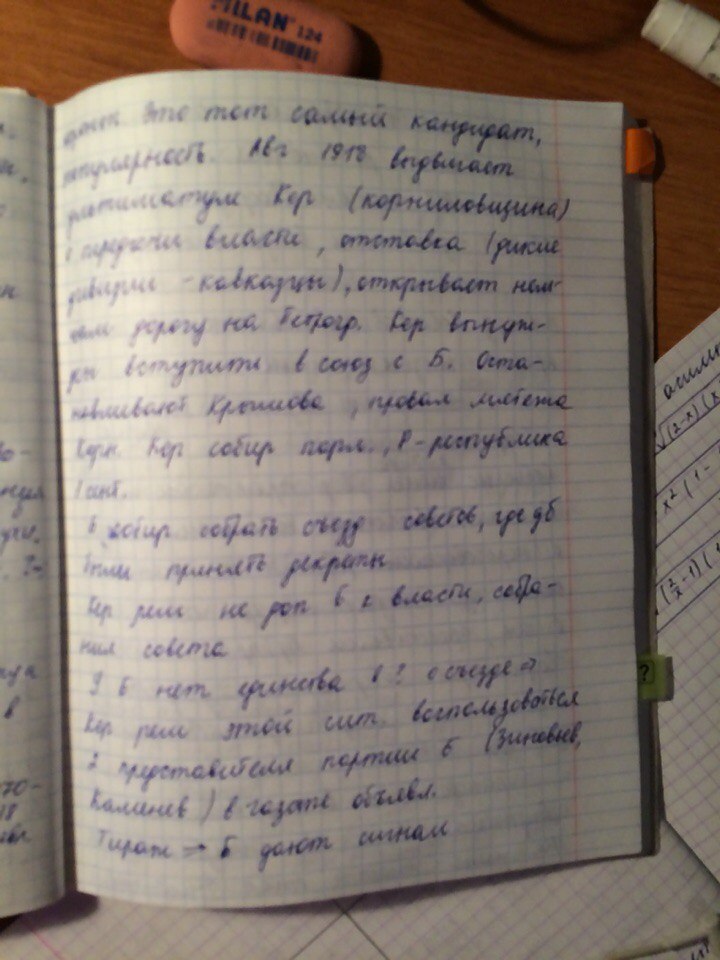 MILAN 124
это тот самый кандидат,
популярность. Авг 1918 выдвигает
ультиматум Кер (корниловщина)
о передачи власти, отставка (дикие
дивизии - кавказцы), открывает нем-
цам дорогу на Петрогр. Кер вынуж-
вступить в союз с Б. Оста-
навливают Крымова, провал мятежа
Корн. Кер собир парл., Р-республика
1 сент.
Б собир собрать съезд советов, где дб
были принять декреты
Кер реш не доп Б к власти, собра-
ния совета
У Б нет единства в ? о съезде ⇒
Кер реш этой сит. воспользоваться
2 представителя партии Б (Зиновьев,
Каменев) в газете объявл.
Тираж → Б дают сигнал
?